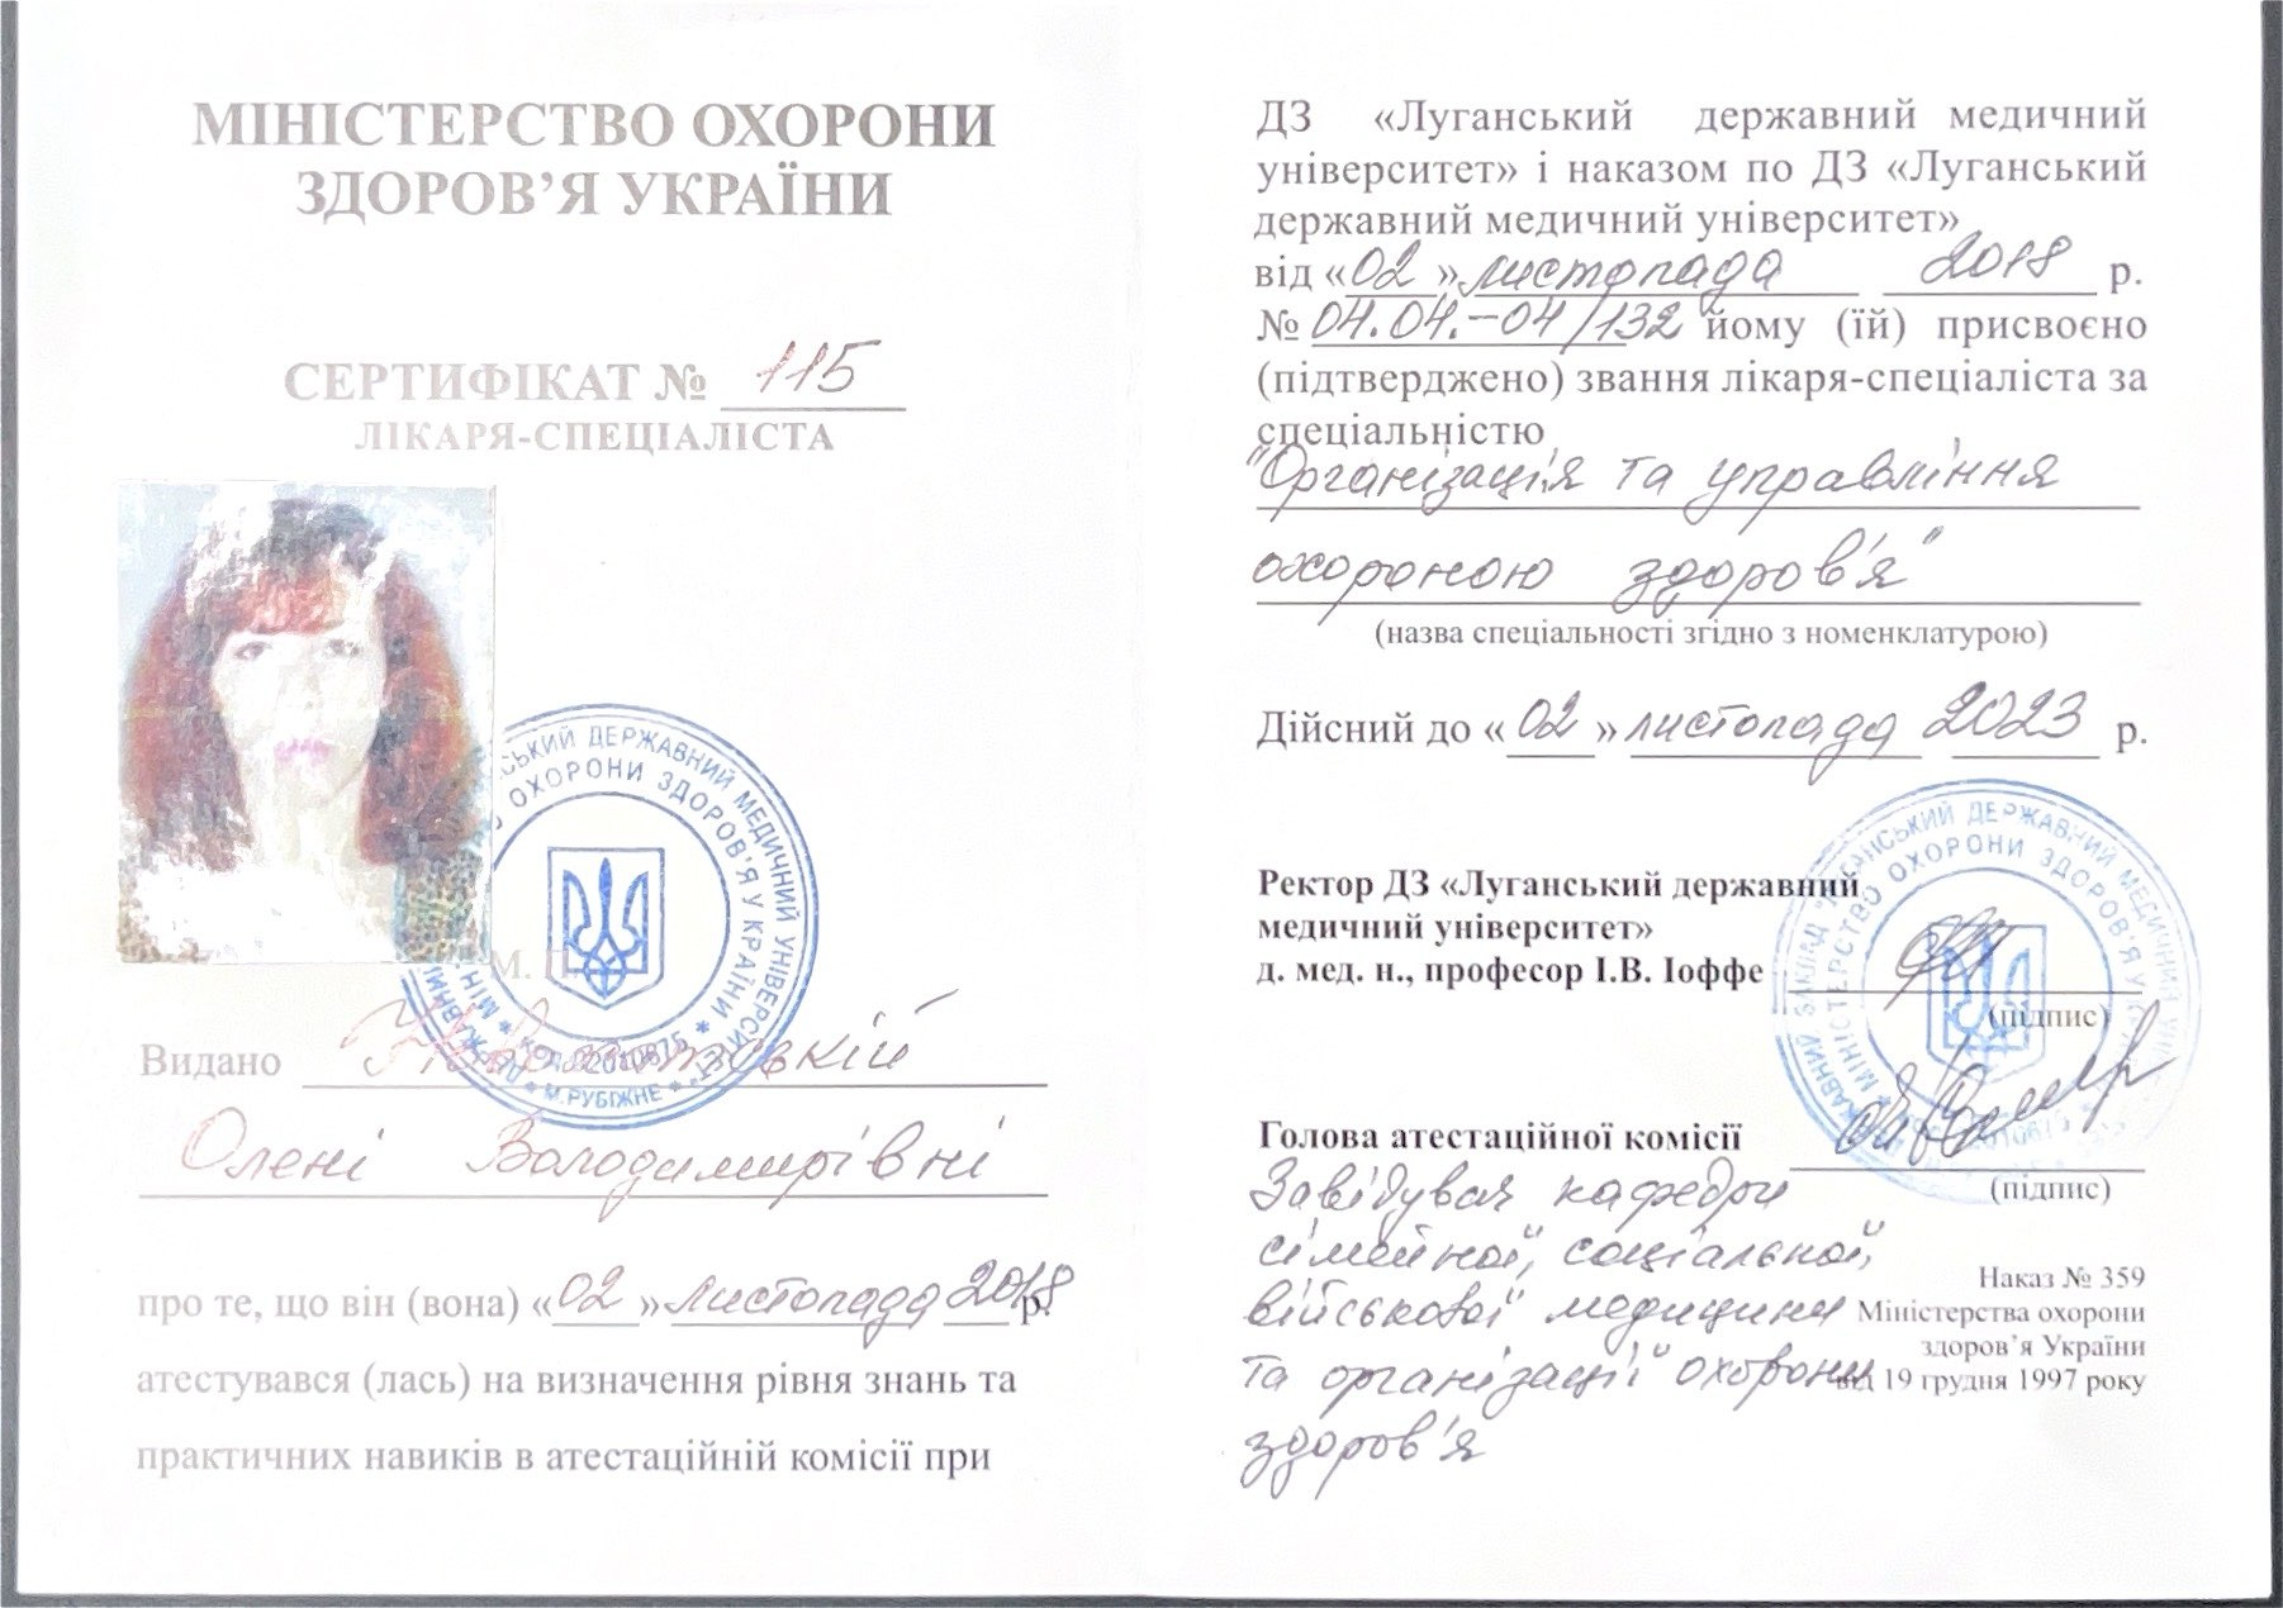 МІНІСТЕРСТВО ОХОРОНИ
ЗДОРОВ’Я УКРАЇНИ
СЕРТИФІКАТ № 115
ЛІКАРЯ-СПЕЦІАЛІСТА
М. П.
Видано
Олені Володимирівні
про те, що він (вона) «02» листопада 2018 р.
атестувався (лась) на визначення рівня знань та
практичних навиків в атестаційній комісії при
ДЕРЖАВНИЙ МЕДИЧНИЙ УНІВЕРСИТЕТ"
ОХОРОНИ ЗДОРОВ'Я УКРАЇНИ
М.РУБІЖНЕ
ДЗ «Луганський державний медичний
університет» і наказом по ДЗ «Луганський
державний медичний університет»
від «02» листопада 2018 р.
№ 04.04.-04/132 йому (їй) присвоєно
(підтверджено) звання лікаря-спеціаліста за
спеціальністю
"Організація та управління
охороною здоров'я"
(назва спеціальності згідно з номенклатурою)
Дійсний до «02» листопада 2023 р.
Ректор ДЗ «Луганський державний
медичний університет»
д. мед. н., професор І.В. Іоффе
(підпис)
Голова атестаційної комісії
(підпис)
Завідувач кафедри
сімейної, соціальної,
військової медицини
та організації охорони
здоров'я
Наказ № 359
Міністерства охорони
здоров’я України
від 19 грудня 1997 року
ДЕРЖАВНИЙ МЕДИЧНИЙ
МІНІСТЕРСТВО ОХОРОНИ ЗДОРОВ'Я